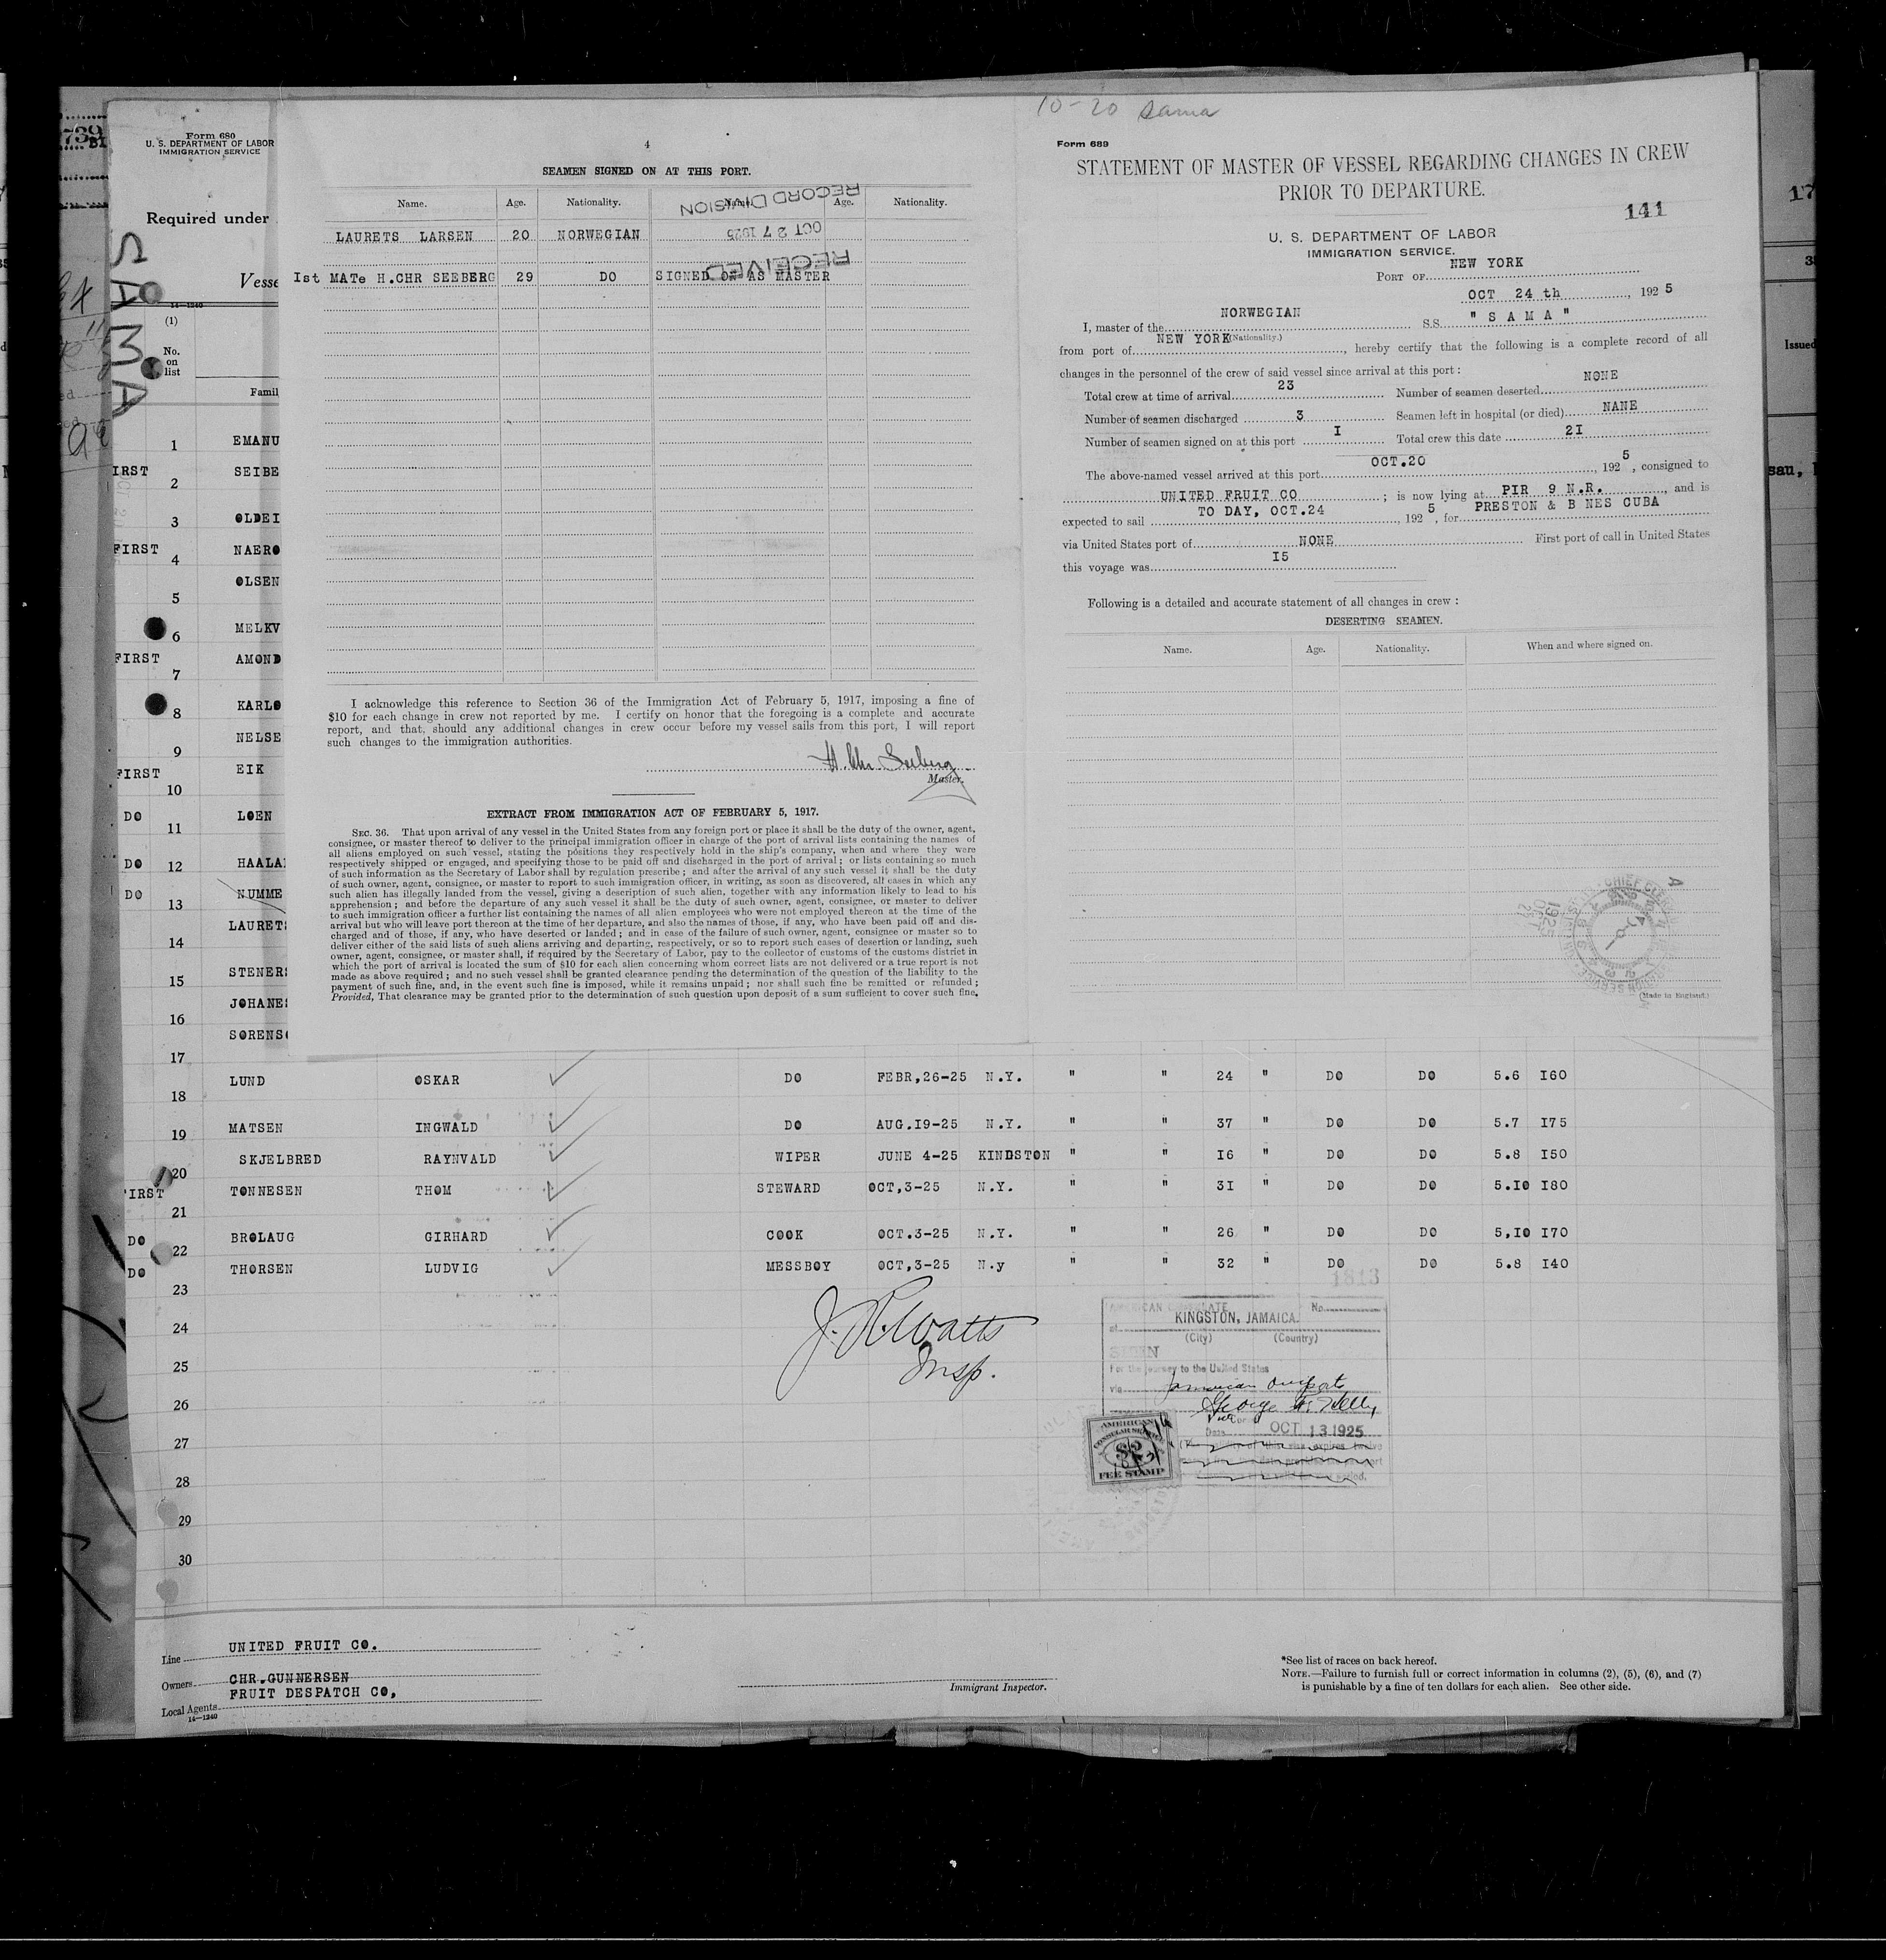 10-20 Sama
Form 680
U. S. DEPARTMENT OF LABOR
IMMIGRATION SERVICE
Required under
Vesse
14—1240
(1)
No.
on
list
Famil
SAMA
1 EMANU
FIRST SEIBE
2
3 OLDEI
FIRST NAERO
4
OLSEN
5
6 MELKV
FIRST AMOND
7
8 KARLO
NELSE
9
FIRST EIK
10
DO LOEN
11
DO 12 HAALA
DO NUMME
13
LAURET
14
STENER
15
JOHANE
16
SORENS
17
4
SEAMEN SIGNED ON AT THIS PORT.
Name. Age. Nationality. Name. Age. Nationality.
RECORD DIVISION
OCT 27 1925
RECEIVED
LAURETS LARSEN 20 NORWEGIAN
Ist MATe H.CHR SEEBERG 29 DO SIGNED ON AS MASTER
I acknowledge this reference to Section 36 of the Immigration Act of February 5, 1917, imposing a fine of
$10 for each change in crew not reported by me. I certify on honor that the foregoing is a complete and accurate
report, and that, should any additional changes in crew occur before my vessel sails from this port, I will report
such changes to the immigration authorities.
H. Chr. Seeberg
Master.
EXTRACT FROM IMMIGRATION ACT OF FEBRUARY 5, 1917.
SEC. 36. That upon arrival of any vessel in the United States from any foreign port or place it shall be the duty of the owner, agent,
consignee, or master thereof to deliver to the principal immigration officer in charge of the port of arrival lists containing the names of
all aliens employed on such vessel, stating the positions they respectively hold in the ship's company, when and where they were
respectively shipped or engaged, and specifying those to be paid off and discharged in the port of arrival; or lists containing so much
of such information as the Secretary of Labor shall by regulation prescribe; and after the arrival of any such vessel it shall be the duty
of such owner, agent, consignee, or master to report to such immigration officer, in writing, as soon as discovered, all cases in which any
such alien has illegally landed from the vessel, giving a description of such alien, together with any information likely to lead to his
apprehension; and before the departure of any such vessel it shall be the duty of such owner, agent, consignee, or master to deliver
to such immigration officer a further list containing the names of all alien employees who were not employed thereon at the time of the
arrival but who will leave port thereon at the time of her departure, and also the names of those, if any, who have been paid off and dis-
charged and of those, if any, who have deserted or landed; and in case of the failure of such owner, agent, consignee or master so to
deliver either of the said lists of such aliens arriving and departing, respectively, or so to report such cases of desertion or landing, such
owner, agent, consignee, or master shall, if required by the Secretary of Labor, pay to the collector of customs of the customs district in
which the port of arrival is located the sum of $10 for each alien concerning whom correct lists are not delivered or a true report is not
made as above required; and no such vessel shall be granted clearance pending the determination of the question of the liability to the
payment of such fine, and, in the event such fine is imposed, while it remains unpaid; nor shall such fine be remitted or refunded;
Provided, That clearance may be granted prior to the determination of such question upon deposit of a sum sufficient to cover such fine.
Form 689
STATEMENT OF MASTER OF VESSEL REGARDING CHANGES IN CREW
PRIOR TO DEPARTURE.
141
U. S. DEPARTMENT OF LABOR
IMMIGRATION SERVICE.
PORT OF NEW YORK
OCT 24 th, 192 5
I, master of the NORWEGIAN S.S. " S A M A "
(Nationality.)
from port of NEW YORK, hereby certify that the following is a complete record of all
changes in the personnel of the crew of said vessel since arrival at this port:
Total crew at time of arrival 23 Number of seamen deserted NONE
Number of seamen discharged 3 Seamen left in hospital (or died) NANE
Number of seamen signed on at this port I Total crew this date 2I
The above-named vessel arrived at this port OCT.20, 192 5, consigned to
UNITED FRUIT CO; is now lying at PIR 9 N.R., and is
expected to sail TO DAY, OCT.24, 192 5, for PRESTON & B NES CUBA
via United States port of NONE First port of call in United States
this voyage was I5
Following is a detailed and accurate statement of all changes in crew:
DESERTING SEAMEN.
Name. Age. Nationality. When and where signed on.
(Made in England.)
LUND OSKAR DO FEBR,26-25 N.Y. " " 24 " DO DO 5.6 I60
18
MATSEN INGWALD DO AUG.I9-25 N.Y. " " 37 " DO DO 5.7 I75
19
SKJELBRED RAYNVALD WIPER JUNE 4-25 KINDSTON " " I6 " DO DO 5.8 I50
20
FIRST TONNESEN THOM STEWARD OCT,3-25 N.Y. " " 3I " DO DO 5.I0 I80
21
DO BROLAUG GIRHARD COOK OCT.3-25 N.Y. " " 26 " DO DO 5,I0 I70
22
DO THORSEN LUDVIG MESSBOY OCT,3-25 N.y " " 32 " DO DO 5.8 I40
23
24
25
26
27
28
29
30
J. R. Watts
Insp.
1813
AMERICAN CONSULATE No.
at KINGSTON, JAMAICA.
(City) (Country)
SEEN
For the journey to the United States
via Jamaican Outports
George W. Kelly
Date OCT 13 1925
AMERICAN
CONSULAR SERVICE
$2
FEE STAMP
Line UNITED FRUIT CO.
Owners CHR.GUNNERSEN
FRUIT DESPATCH CO,
Local Agents
14—1240
Immigrant Inspector.
*See list of races on back hereof.
NOTE.—Failure to furnish full or correct information in columns (2), (5), (6), and (7)
is punishable by a fine of ten dollars for each alien. See other side.